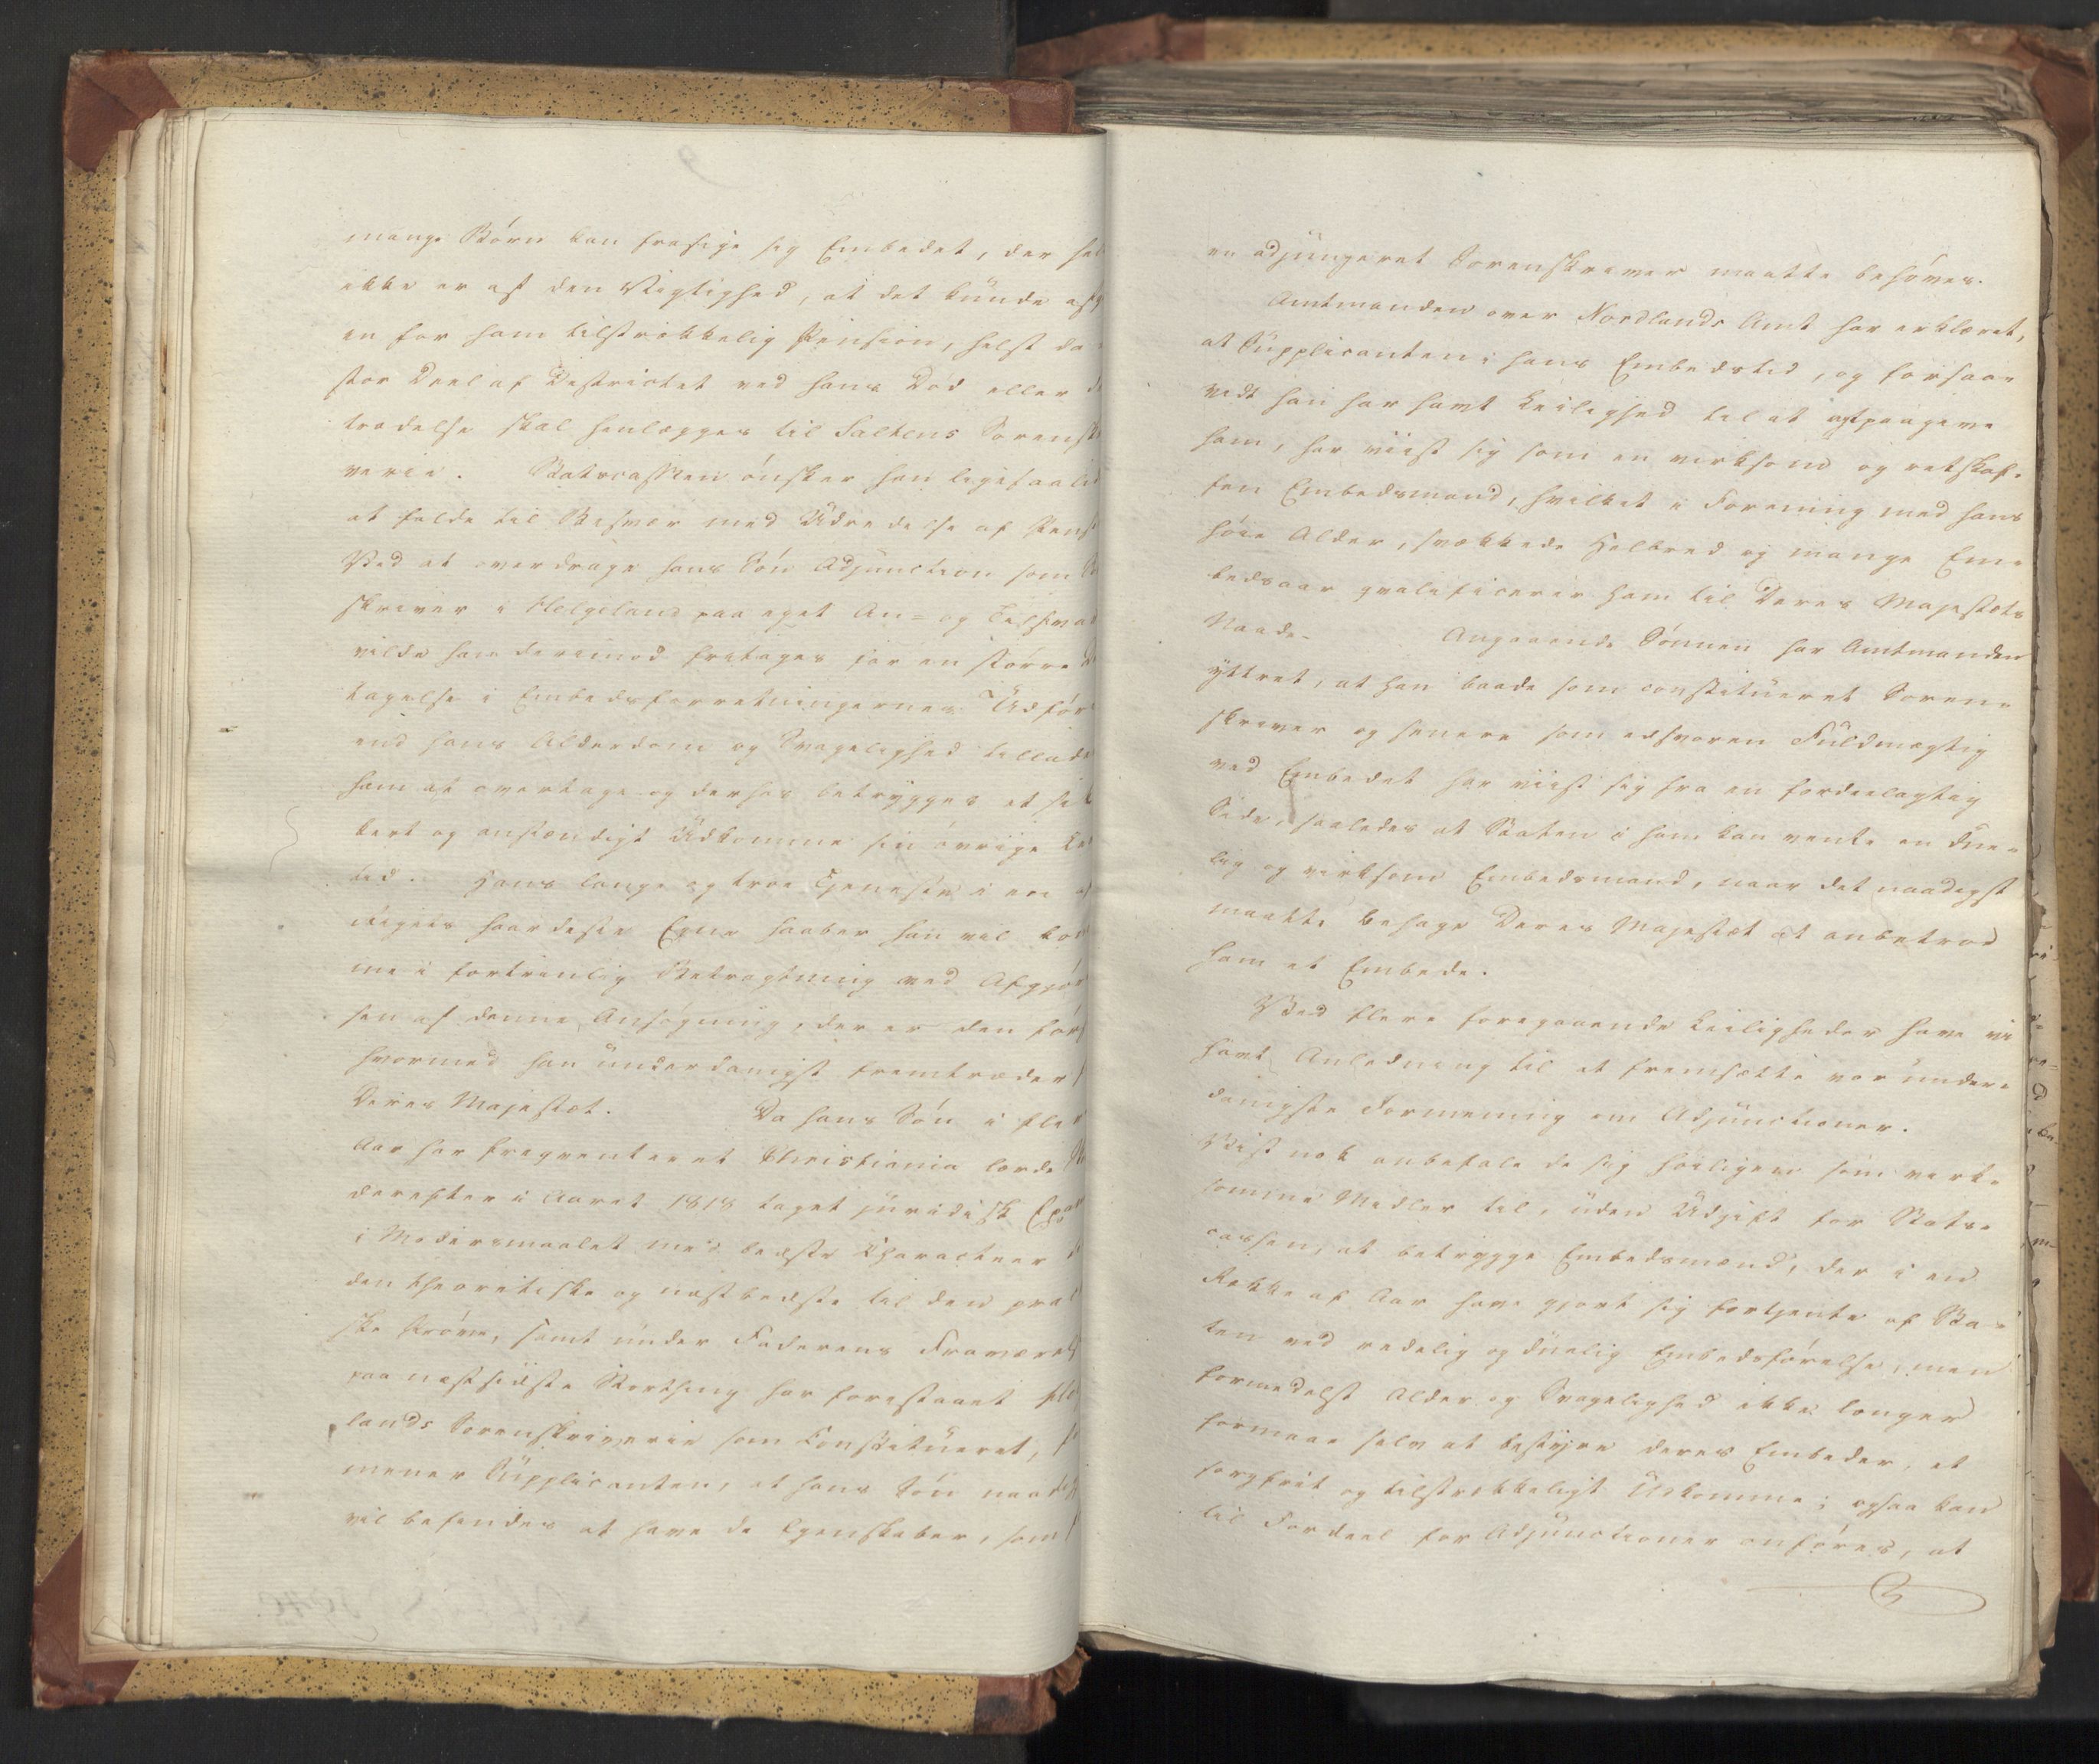 mange Börn kan frasige sig Embedet, der hel
ikke er af den Vigtighed, at det kunde afg
en for ham tilstrækkelig Pension, helst da
stor Deel af Districtet ved hans Död eller
trædelse skal henlægges til Saltens Sorensk
verie. Statscassen önsker han ligesaalid
at falde til Besvær med Udredelse af Pens
Ved at overdrage hans Sön Adjunction som So
skriver i Helgeland paa eget An- og Tilsvar
vilde han derimod fritages for en större De
tagelse i Embedsforretningernes Udför
end hans Alderdom og Svagelighed tillade
ham at overtage og derhos betrygges et sik
kert og anstændigt Udkomme sin övrige Le
tid. Hans lange og troe Tjeneste i en af
Rigets haardeste Egne haaber han vil kom
me i fortrinlig Betragtning ved Afgjör
sen af denne Ansögning, der er den förs
hvormed han underdanigst fremtræder f
Deres Majestæt. Da hans Sön i fler
Aar har freqventeret Christiania lærde Sk
derefter i Aaret 1818 taget juridisk Exam
i Modersmaalet med bedste Characteer
den theoretiske og næstbedste til den prac
ske Pröve, samt under Faderens Fraværels
paa næstsidste Storthing har forestaaet Hel
lands Sorenskriverie som Constitueret,
mener Supplicanten, at hans Sön naadigst
vil befindes at have de Egenskaber, som
en adjungeret Sorenskriver maatte behöves.
Amtmanden over Nordlands Amt har erklæret,
at Supplicanten i hans Embedstid, og forsaa-
vidt han har havt Leilighed til at agtpaagive
ham, har viist sig som en virksom og retskaf-
fen Embedsmand, hvilket i Forening med hans
höie Alder, svækkede Helbred og mange Em-
bedsaar qvalificerer ham til Deres Majestæts
Naade. Angaaende Sönnen har Amtmanden
yttret, at han baade som constitueret Soren-
skriver og senere som edsvoren Fuldmægtig
ved Embedet har viist sig fra en fordeelagtig
Side, saaledes at Staten i ham kan vente en due-
lig og virksom Embedsmand, naar det naadigst
maatte behage Deres Majestæt at anbetroe
ham et Embede.
Ved flere foregaaende Leiligheder have vi
havt Anledning til at fremsætte vor under-
danigste Formening om Adjunctioner.
Vist nok anbefale de sig höiligen som virk-
somme Midler til, uden Udgift for Stats-
cassen, at betrygge Embedsmænd, der i en
Række af Aar have gjort sig fortjente af Sta-
ten ved redelig og duelig Embedsförelse, men
formedelst Alder og Svagelighed ikke længer
formaae selv at bestyre deres Embeder, et
sorgfrit og tilstrækkeligt Udkomme; ogsaa kan
til Fordeel for Adjunctioner anföres, at